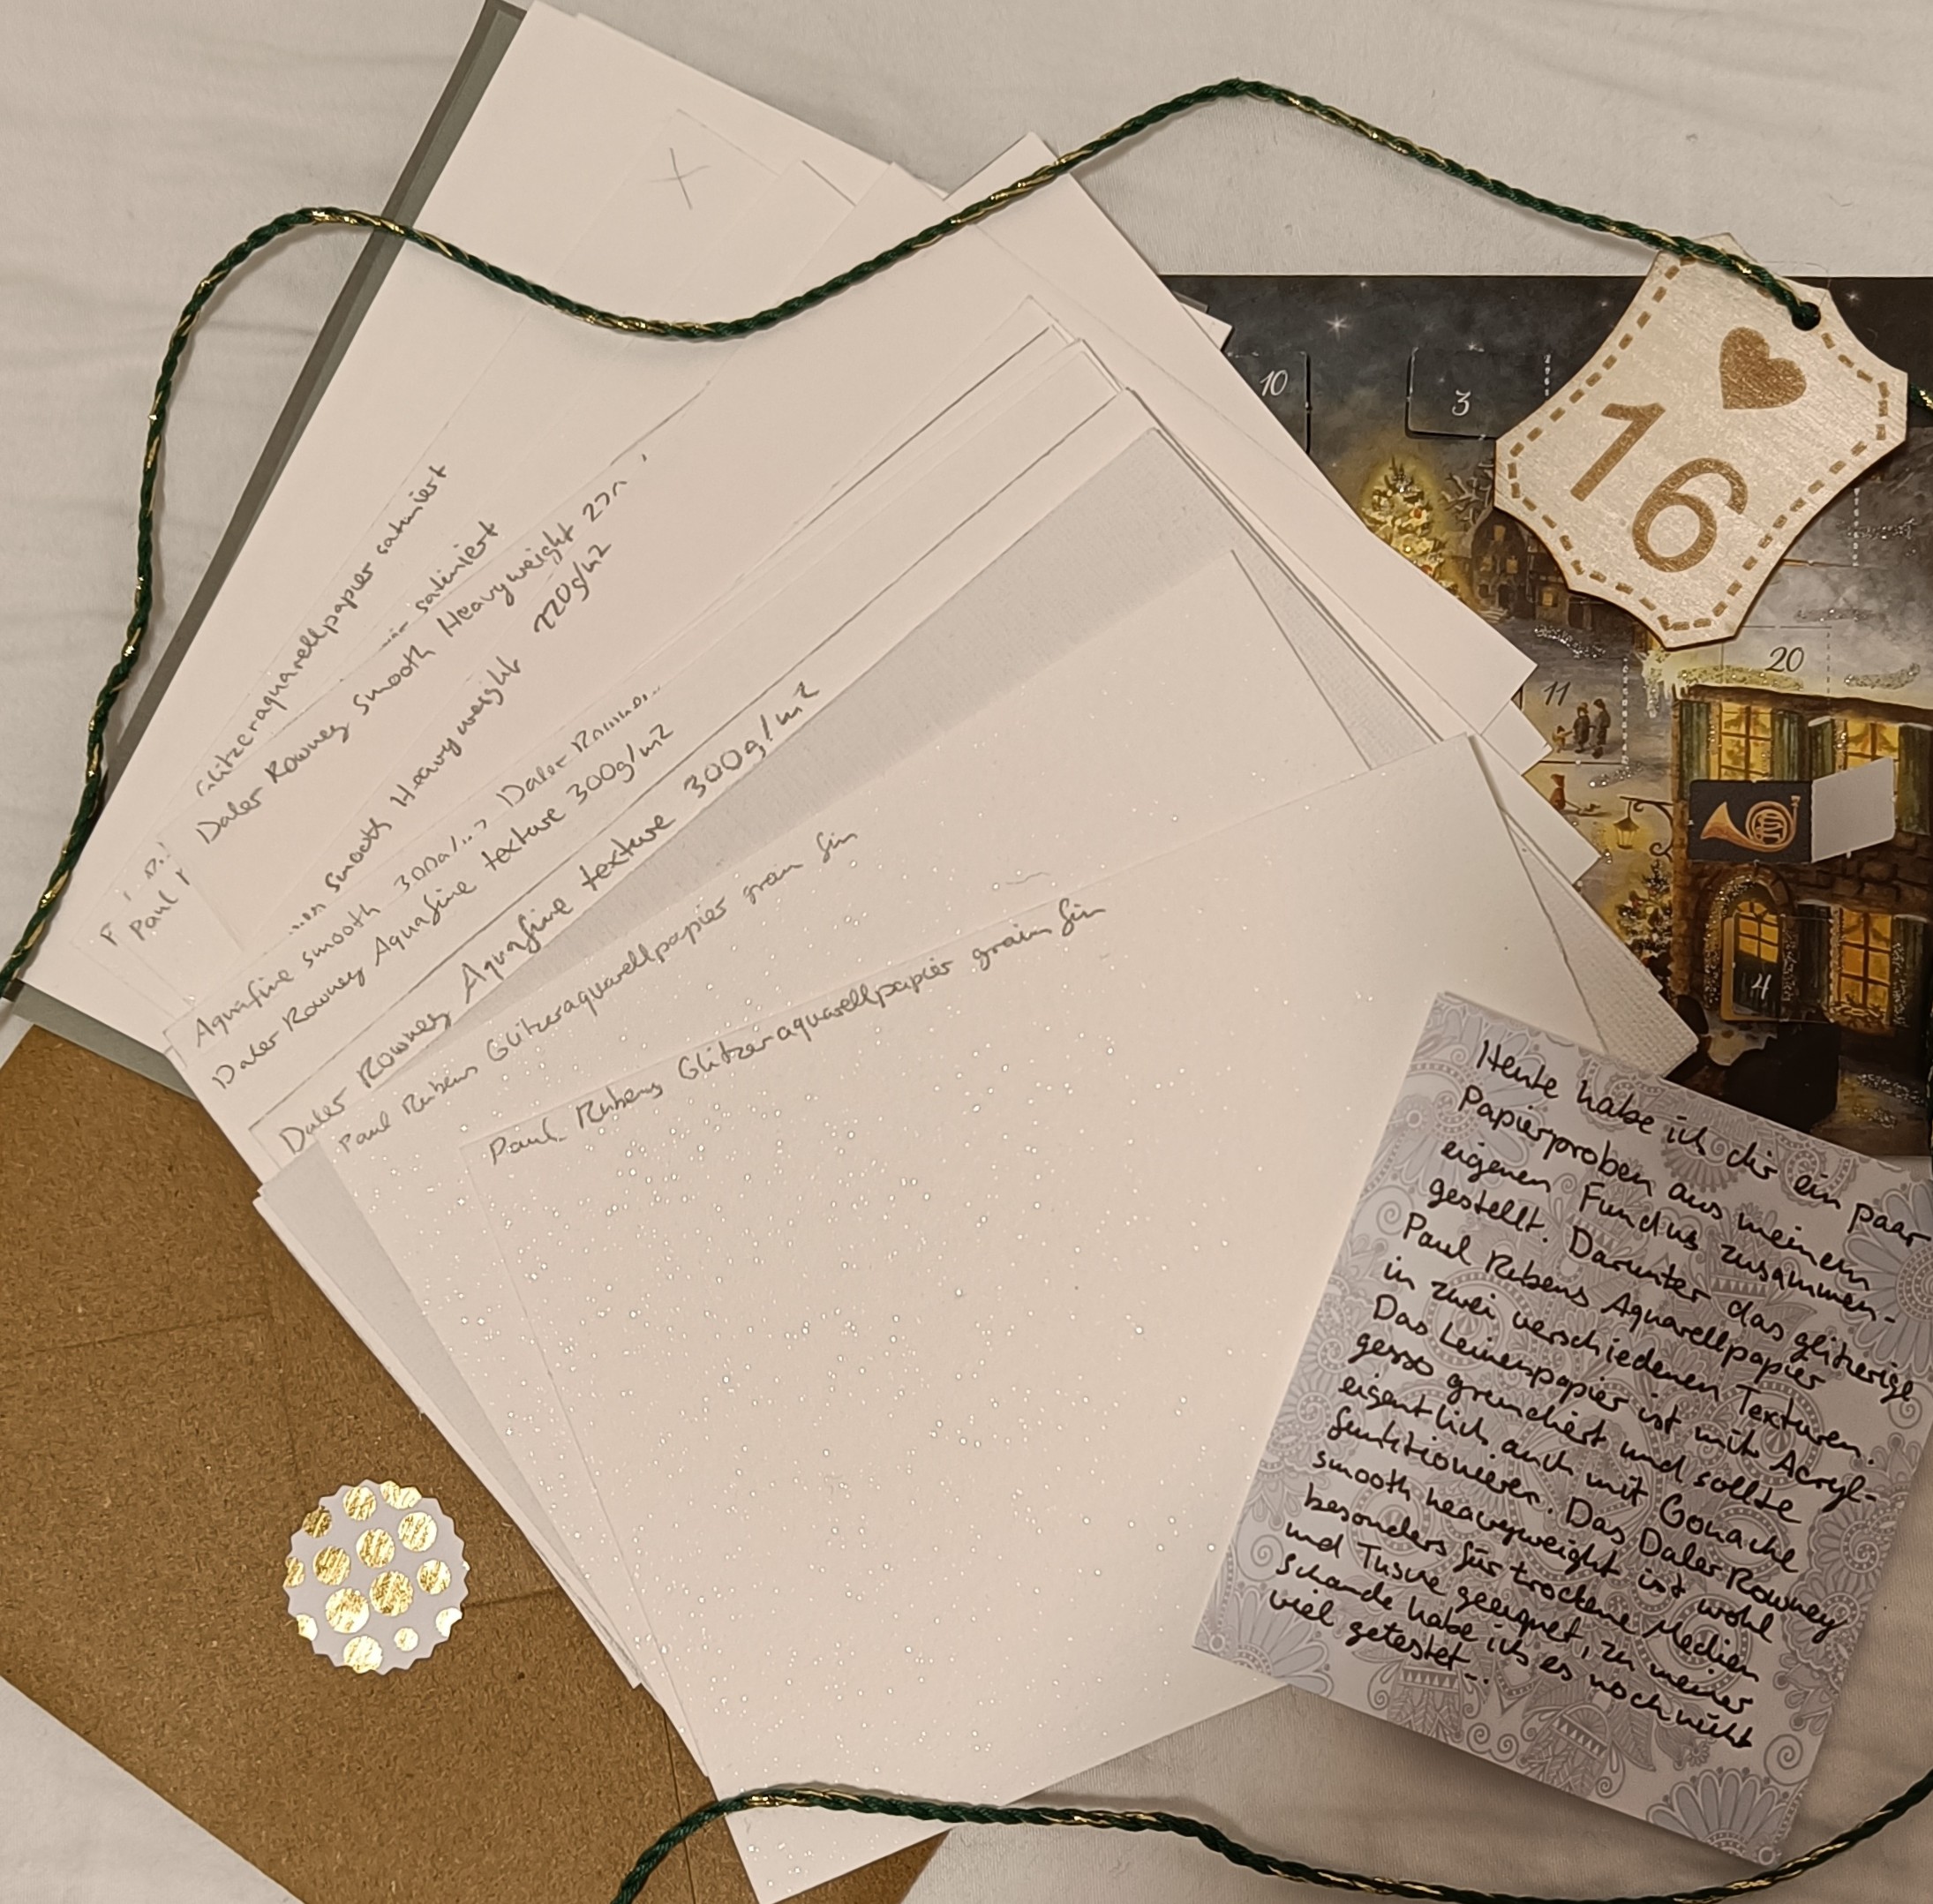 Glitzeraquarellpapier satiniert
satiniert
Paul
Daler Rowney Smooth Heavyweight
smooth Heavyweight 220g/m2
Aquafine smooth
Daler Rowney Aquafine texture 300g/m2
Daler Rowney Aquafine texture 300g/m2
Paul Rubens Glitzeraquarellpapier grain fin
Paul Rubens Glitzeraquarellpapier grain fin
16
10
3
20
11
4
Heute habe ich dir ein paar
Papierproben aus meinem
eigenen Fundus zusammen-
gestellt. Darunter das glitzerige
Paul Rubens Aquarellpapier
in zwei verschiedenen Texturen.
Das Leinenpapier ist mit Acryl-
gesso grundiert und sollte
eigentlich auch mit Gouache
funktionieren. Das Daler Rowney
smooth heavyweight ist wohl
besonders für trockene Medien
und Tusche geeignet, zu meiner
Schande habe ich es noch nicht
viel getestet...